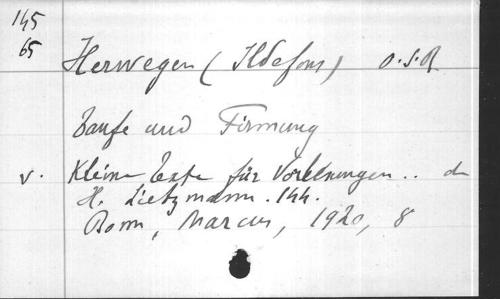 145
65
Herwegen (Ildefons) O.S.B
Taufe und Firmung
v. Kleine Texte für Vorlesungen .. de
H. Lietzmann. 144.
Bonn, Marcus, 1920, 8